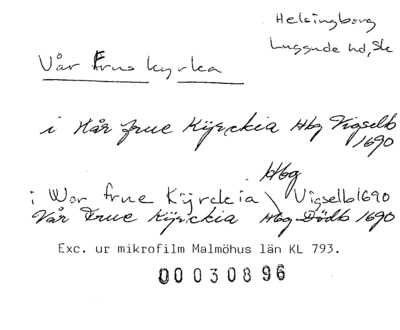 Helsingborg
Luggude hd, Sk
Vår Frus kyrka
i Wår frue Kijrckia Hbg Vigselb
1690
Hbg
i Wor frue Kijrckia \ Vigselb 1690
Vår Frue Kijrckia Hbg Dödb 1690
Exc. ur mikrofilm Malmöhus län KL 793.
00030896